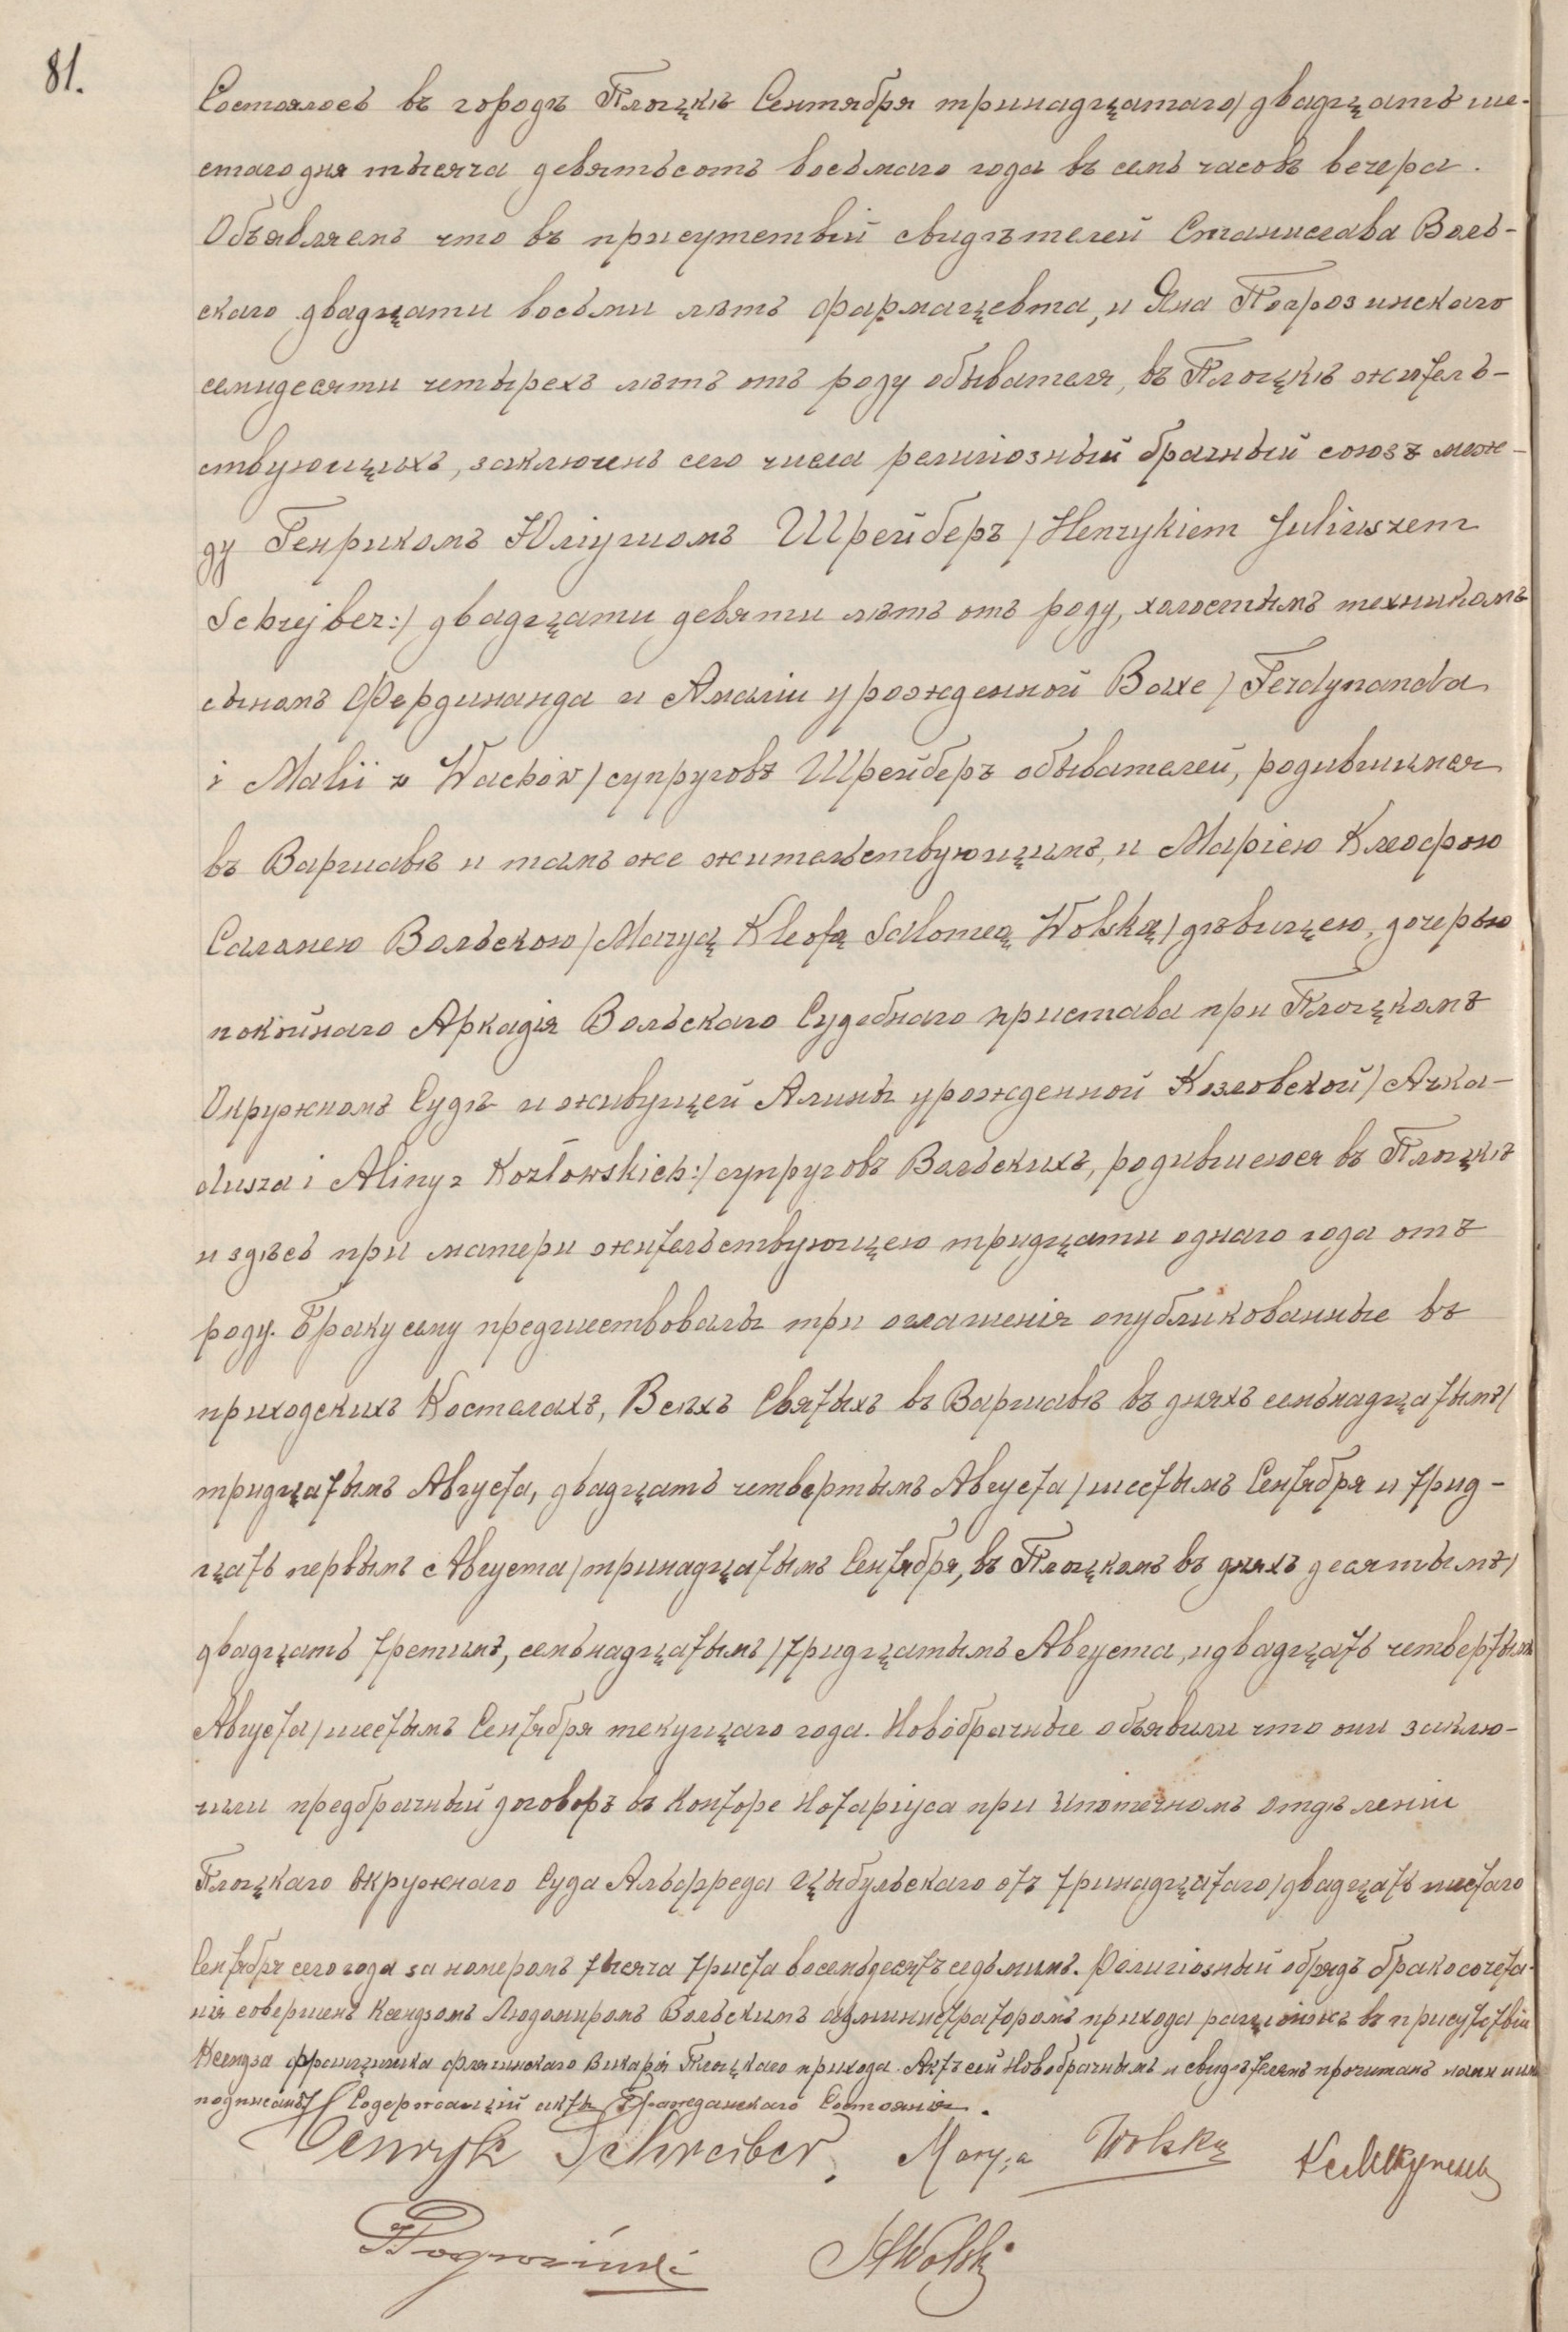 81.
Состоялось въ городѣ Плоцкѣ Сентября тринадцатаго/двадцать ше-
стаго дня тысяча девятьсотъ восьмаго года въ семь часовъ вечера.
Объявляемъ что въ присутствіи свидѣтелей Станислава Воль-
скаго двадцати восьми лѣтъ фармацевта, и Яна Погрозинскаго
семидесяти четырехъ лѣтъ отъ роду обывателя, въ Плоцкѣ житель-
ствующихъ, заключенъ сего числа религіозный брачный союзъ меж-
ду Генрикомъ Юліушомъ Шрейберъ /Henrykiem Juliuszem
Schrejber:/ двадцати девяти лѣтъ отъ роду, холостымъ техникомъ
сыномъ Фердинанда и Амаліи урожденной Вахе /Ferdynanda
i Malii z Wachów/ супруговъ Шрейберъ обывателей, родившимся
въ Варшавѣ и тамъ же жительствующимъ, и Маріею Клеофою
Саломею Вольскою /Maryą Kleofą Salomeą Wolską/ дѣвицею, дочерью
покойнаго Аркадія Вольскаго Судебнаго пристава при Плоцкомъ
Окружномъ Судѣ и живущей Алины урожденной Козловской /Arka-
dusza i Aliny z Kozłowskich:/ супруговъ Вольскихъ, родившеюся въ Плоцкѣ
и здѣсь при матери жительствующею тридцати одного года отъ
роду. Браку сему предшествовалы три оглашенія опубликованные въ
приходскихъ Костелахъ, Всѣхъ Святыхъ въ Варшавѣ въ дняхъ семьнадцатымъ/
тридцатымъ Августа, двадцать четвертымъ Августа/шестымъ Сентября и трид-
цать первымъ Августа/тринадцатымъ Сентября, въ Плоцкомъ въ дняхъ десятымъ/
двадцать третимъ, семьнадцатымъ/тридцатымъ Августа, и двадцать четвертымъ
Августа/шестымъ Сентября текущаго года. Новобрачные объявили что они заклю-
чили предбрачный договоръ въ Конторе Нотаріуса при Ипотечномъ Отдѣленіи
Плоцкаго Окружнаго Суда Альфреда Цыбульскаго отъ тринадцатаго/двадцать шестаго
Сентября сего года за номеромъ тысяча триста восемьдесятъ седьмимъ. Религіозный обрядъ бракосочета-
нія совершенъ Ксендзомъ Людомиромъ Вольскимъ администраторомъ прихода въ присутствіи
Ксендза Францишка Викарія Плоцкаго прихода. Актъ сей Новобрачнымъ и свидѣтелямъ прочитанъ нами и ими
подписанъ Содержащій акты Гражданскаго Состоянія.
Henryk Schreiber, Marya Wolska
Pogroziński StWolski